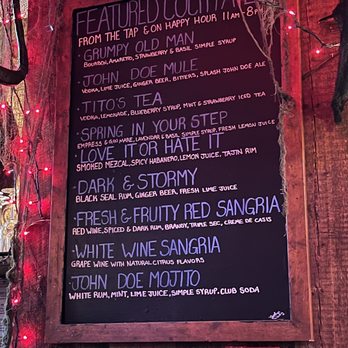 FEATURED COCKTA
FROM THE TAP & ON HAPPY HOUR 11AM-8PM
· GRUMPY OLD MAN
BOURBON, AMARETTO, STRAWBERRY & BASIL SIMPLE SYRUP
· JOHN DOE MULE
VODKA, LIME JUICE, GINGER BEER, BITTERS, SPLASH JOHN DOE ALE
· TITO'S TEA
VODKA, LEMONADE, BLUEBERRY SYRUP, MINT & STRAWBERRY ICED TEA
· SPRING IN YOUR STEP
EMPRESS & MARE, LAVENDER & BASIL SIMPLE SYRUP, FRESH LEMON JUICE
· LOVE IT OR HATE IT
SMOKED MEZCAL, SPICY HABANERO, LEMON JUICE, TAJIN RIM
· DARK & STORMY
BLACK SEAL RUM, GINGER BEER, FRESH LIME JUICE
· FRESH & FRUITY RED SANGRIA
RED WINE, SPICED & DARK RUM, BRANDY, TRIPLE SEC, CREME DE CASIS
· WHITE WINE SANGRIA
GRAPE WINE WITH NATURAL CITRUS FLAVORS
· JOHN DOE MOJITO
WHITE RUM, MINT, LIME JUICE, SIMPLE SYRUP, CLUB SODA